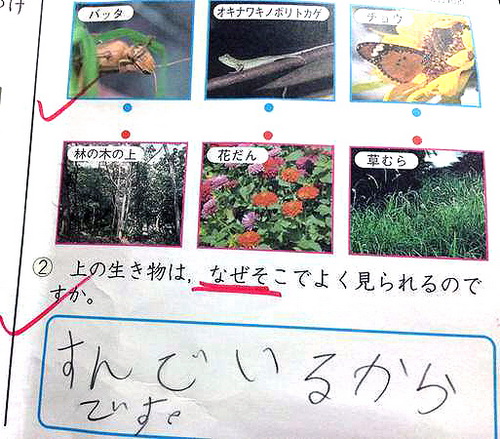 バッタ
オキナワキノボリトカゲ
チョウ
林の木の上
花だん
草むら
② 上の生き物は,なぜそこでよく見られるので
すか。
すんでいるから
です。